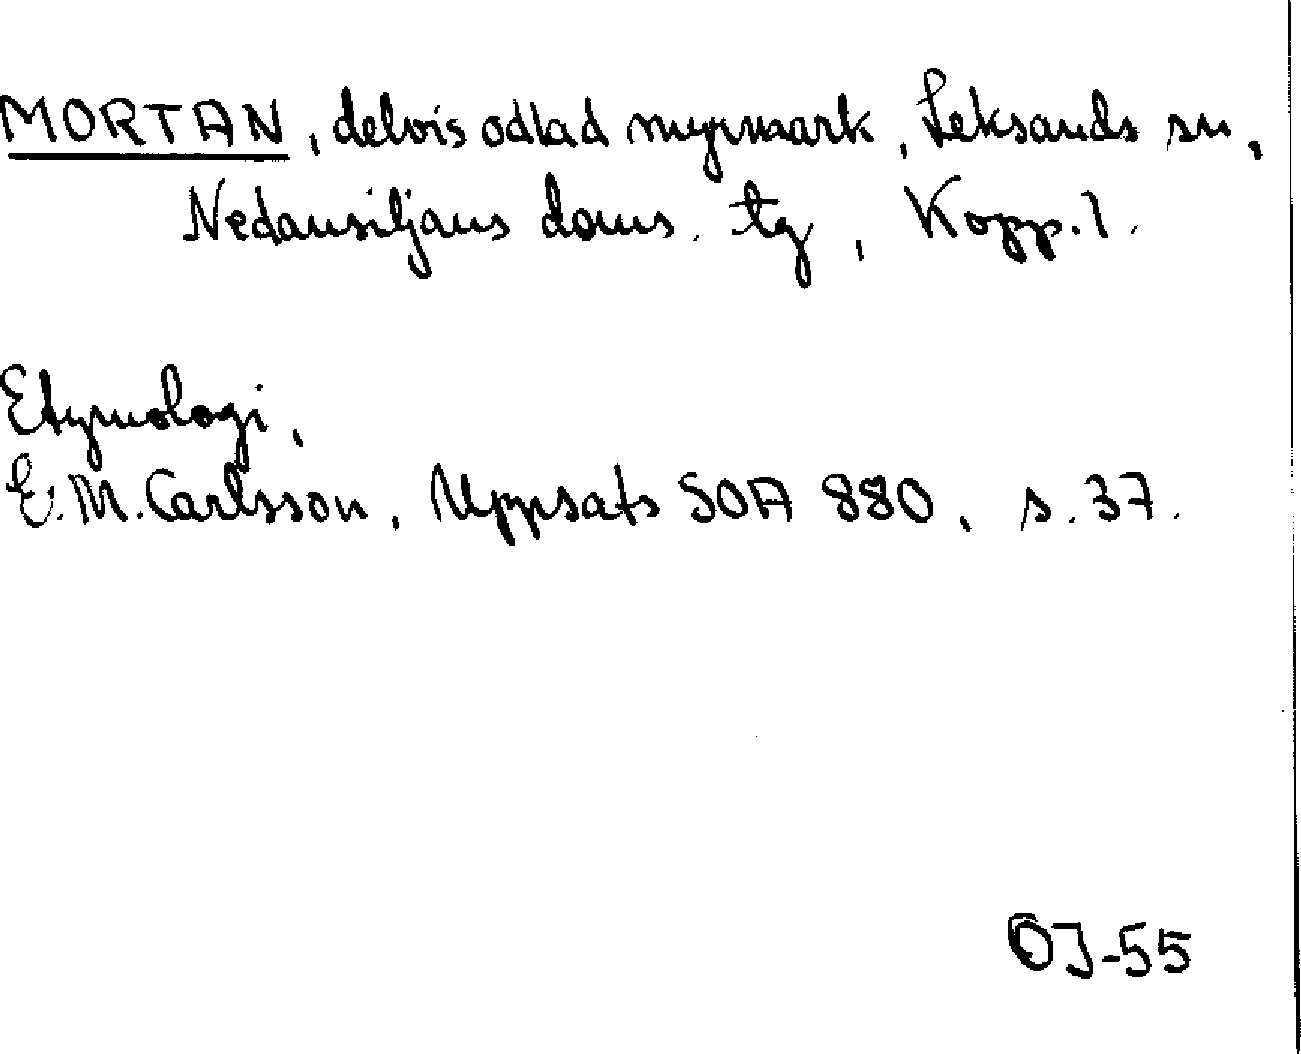 MORTAN, delvis odlad myrmark, Leksands sn,
Nedansiljans doms. tg, Kopp. l.
Etymologi,
E. M. Carlsson, Uppsats SOA 880, s. 37.
OJ-55